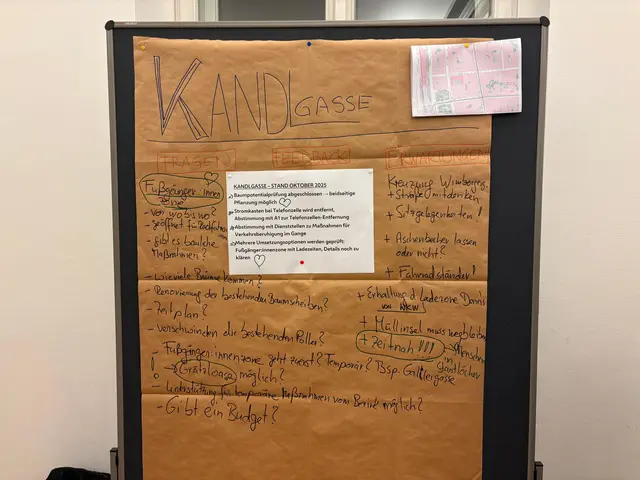 KANDLGASSE
FRAGEN
FEEDBACK
ERWARTUNGEN
Fußgänger:innen
zone
- von wo bis wo?
- geöffnet für Radfahrer
- gibt es bauliche
Maßnahmen?
- wieviele Bäume kommen?
- Renovierung der bestehenden Baumscheiben?
- Zeitplan?
- verschwinden die bestehenden Poller?
- Fußgänger:innenzone geht zuerst? Temporär? Bsp. Galliergasse
! - Grätzloase möglich?
- Unterstützung für temporäre Maßnahmen vom Bezirk möglich?
- Gibt ein Budget?
KANDLGASSE - STAND OKTOBER 2025
Baumpotentialprüfung abgeschlossen → beidseitige
Pflanzung möglich
Stromkasten bei Telefonzelle wird entfernt,
Abstimmung mit A1 zur Telefonzellen-Entfernung
Abstimmung mit Dienststellen zu Maßnahmen für
Verkehrsberuhigung im Gange
Mehrere Umsetzungsoptionen werden geprüft:
Fußgänger:innenzone mit Ladezeiten, Details noch zu
klären
Kreuzung
+ Straße mitdenken
+ Sitzgelegenheiten!
+ Aschenbecher lassen
oder nicht?
+ Fahrradständer!
+ Erhaltung d. Ladezone
von
+ Müllinsel muss wegbleiben
+ Zeitnah!!!